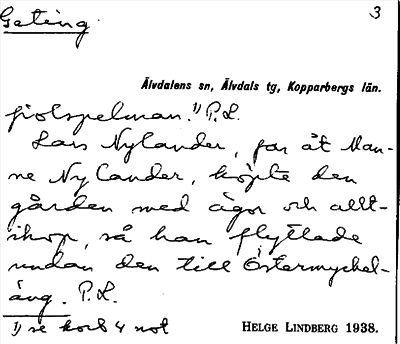 Gating. 3
Älvdalens sn, Älvdals tg, Kopparbergs län.
fiolspelman.¹⁾ P.L.
Lars Nylander, far åt Man-
ne Nylander, köpte den
gården med ägor och allt-
ihop, så han flyttade
undan den till Östermyckel-
äng. P.L.
¹⁾ se kort 4 not
HELGE LINDBERG 1938.